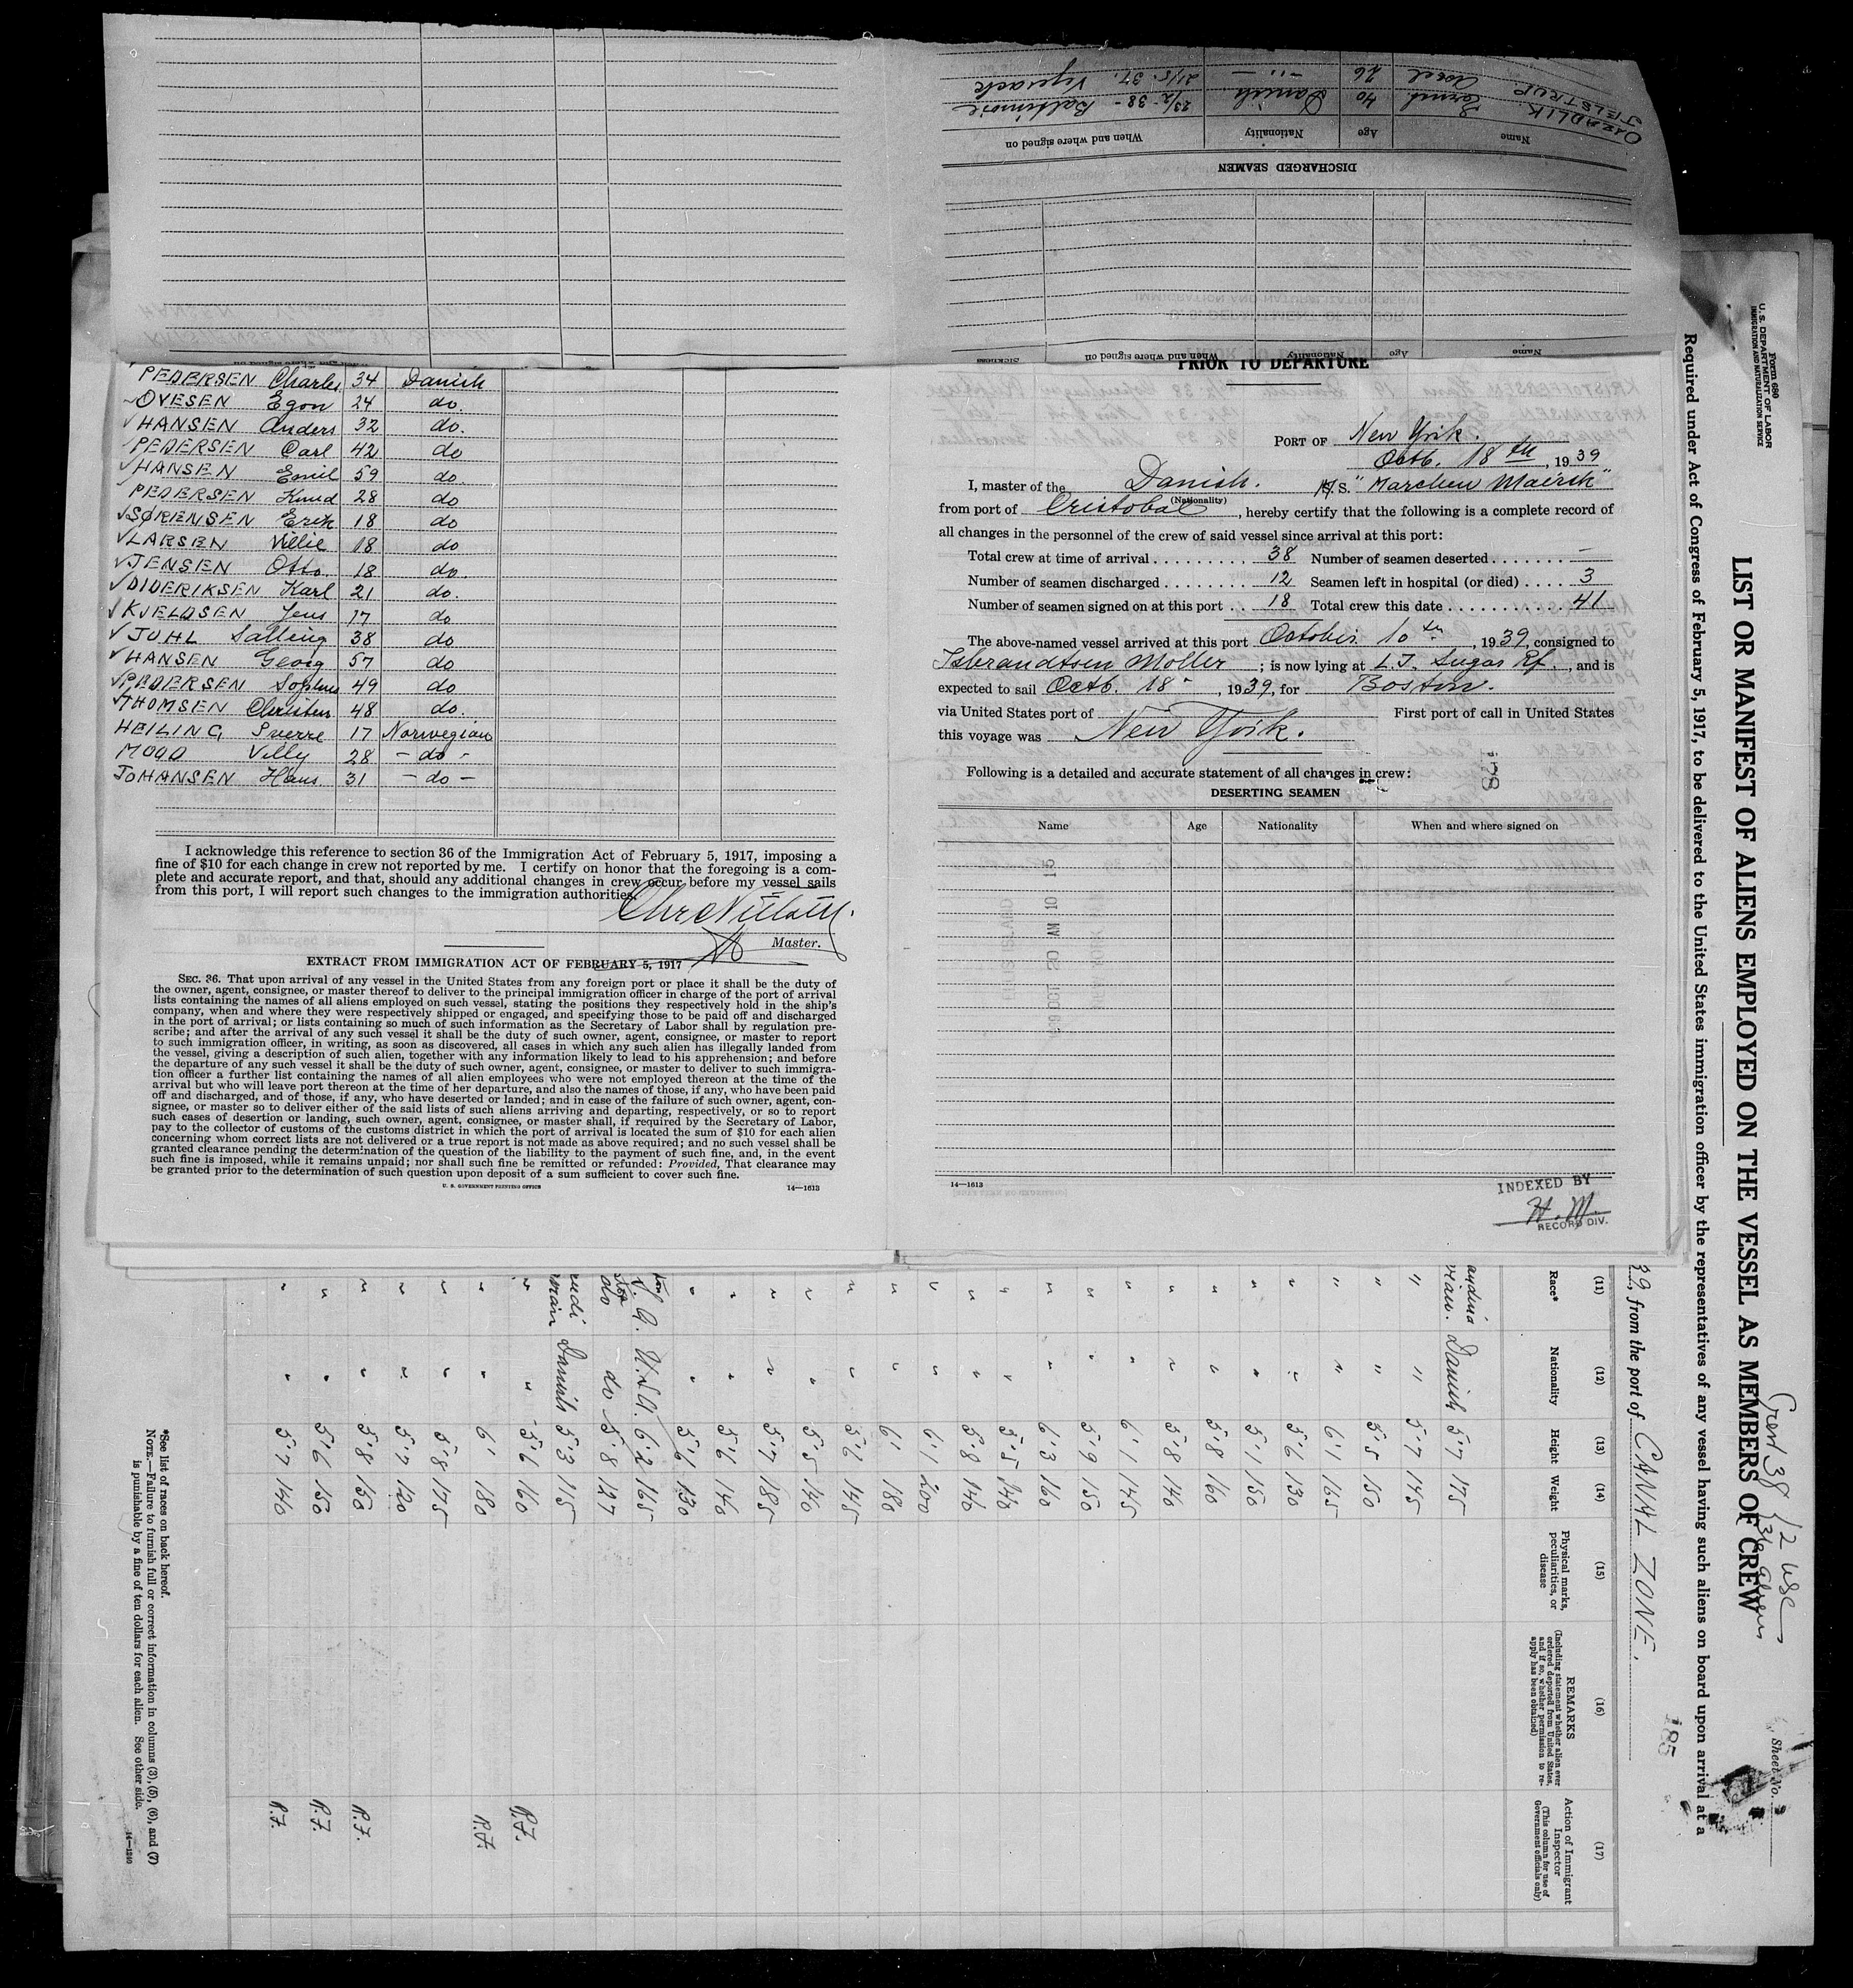 DISCHARGED SEAMEN
Name Age Nationality When and where signed on
40 Danish 23/2-38 - Baltimore
JELSTRUP Axel 26 -"- 21/5-37.
Name Age Nationality When and where signed on Sickness
PEDERSEN Charles 34 Danish
OVESEN Egon 24 do.
HANSEN Anders 32 do.
PEDERSEN Carl 42 do
HANSEN Emil 59 do.
PEDERSEN Knud 28 do
SØRENSEN Erik 18 do
LARSEN Villie 18 do
JENSEN Otto 18 do.
DIDERIKSEN Karl 21 do.
KJELDSEN Jens 17 do
JUHL Salling 38 do
HANSEN Georg 57 do
PEDERSEN Sophus 49 do
THOMSEN Christen 48 do.
HEILING Sverre 17 Norwegian
MOGD Villy 28 - do -
JOHANSEN Hans 31 - do -
I acknowledge this reference to section 36 of the Immigration Act of February 5, 1917, imposing a
fine of $10 for each change in crew not reported by me. I certify on honor that the foregoing is a com-
plete and accurate report, and that, should any additional changes in crew occur before my vessel sails
from this port, I will report such changes to the immigration authorities.
Master.
EXTRACT FROM IMMIGRATION ACT OF FEBRUARY 5, 1917
SEC. 36. That upon arrival of any vessel in the United States from any foreign port or place it shall be the duty of
the owner, agent, consignee, or master thereof to deliver to the principal immigration officer in charge of the port of arrival
lists containing the names of all aliens employed on such vessel, stating the positions they respectively hold in the ship's
company, when and where they were respectively shipped or engaged, and specifying those to be paid off and discharged
in the port of arrival; or lists containing so much of such information as the Secretary of Labor shall by regulation pre-
scribe; and after the arrival of any such vessel it shall be the duty of such owner, agent, consignee, or master to report
to such immigration officer, in writing, as soon as discovered, all cases in which any such alien has illegally landed from
the vessel, giving a description of such alien, together with any information likely to lead to his apprehension; and before
the departure of any such vessel it shall be the duty of such owner, agent, consignee, or master to deliver to such immigra-
tion officer a further list containing the names of all alien employees who were not employed thereon at the time of the
arrival but who will leave port thereon at the time of her departure, and also the names of those, if any, who have been paid
off and discharged, and of those, if any, who have deserted or landed; and in case of the failure of such owner, agent, con-
signee, or master so to deliver either of the said lists of such aliens arriving and departing, respectively, or so to report
such cases of desertion or landing, such owner, agent, consignee, or master shall, if required by the Secretary of Labor,
pay to the collector of customs of the customs district in which the port of arrival is located the sum of $10 for each alien
concerning whom correct lists are not delivered or a true report is not made as above required; and no such vessel shall be
granted clearance pending the determination of the question of the liability to the payment of such fine, and, in the event
such fine is imposed, while it remains unpaid; nor shall such fine be remitted or refunded: Provided, That clearance may
be granted prior to the determination of such question upon deposit of a sum sufficient to cover such fine.
U. S. GOVERNMENT PRINTING OFFICE 14—1613
PRIOR TO DEPARTURE
PORT OF New York.
Octb. 18th, 1939
I, master of the Danish. M.S. "Marchen Maersk"
(Nationality)
from port of Cristobal, hereby certify that the following is a complete record of
all changes in the personnel of the crew of said vessel since arrival at this port:
Total crew at time of arrival 38 Number of seamen deserted —
Number of seamen discharged 12 Seamen left in hospital (or died) 3
Number of seamen signed on at this port 18 Total crew this date 41
The above-named vessel arrived at this port October 10th, 1939, consigned to
Isbrandtsen Moller; is now lying at L.I. Sugar Rf., and is
expected to sail Octb. 18, 1939, for Boston.
via United States port of First port of call in United States
this voyage was New York.
178
Following is a detailed and accurate statement of all changes in crew:
DESERTING SEAMEN
Name Age Nationality When and where signed on
14—1613
INDEXED BY
H. M.
RECORD DIV.
Form 680
U. S. DEPARTMENT OF LABOR
IMMIGRATION AND NATURALIZATION SERVICE
Sheet No.
Crew 38 {2 usc
36 aliens
LIST OR MANIFEST OF ALIENS EMPLOYED ON THE VESSEL AS MEMBERS OF CREW
Required under Act of Congress of February 5, 1917, to be delivered to the United States immigration officer by the representatives of any vessel having such aliens on board upon arrival at a
185
39, from the port of CANAL ZONE.
(11) (12) (13) (14) (15) (16) (17)
Race* Nationality Height Weight Physical marks, peculiarities, or disease REMARKS (Including statement whether alien ever ordered deported from United States, and if so, whether permission to re-apply has been obtained) Action of Immigrant Inspector (This column for use of Government officials only)
andina
vian. Danish 5'7 175
" " 5'7 145
" " 5'5 150
" " 6'1 165
" " 5'6 130
" " 5'1 150
" " 5'8 160
" " 5'8 140
" " 6'1 145
" " 5'9 150
" " 6'3 160
" " 5'5 140
" " 5'8 140
" " 6'1 200
" " 6'1 180
" " 5'6 145
" " 5'5 140
" " 5'7 185
" " 5'6 140
" " 5'6 130
U.S.A. 6'2 165
do do 5'8 127
Danish 5'3 115
" " 5'6 160 R.F.
" " 6'1 180 R.F.
" " 5'8 175
" " 5'7 120
" " 5'8 150 R.F.
" " 5'6 150 R.F.
" " 5'7 140 R.F.
*See list of races on back hereof.
NOTE.—Failure to furnish full or correct information in columns (3), (5), (6), and (7)
is punishable by a fine of ten dollars for each alien. See other side.
14—1240